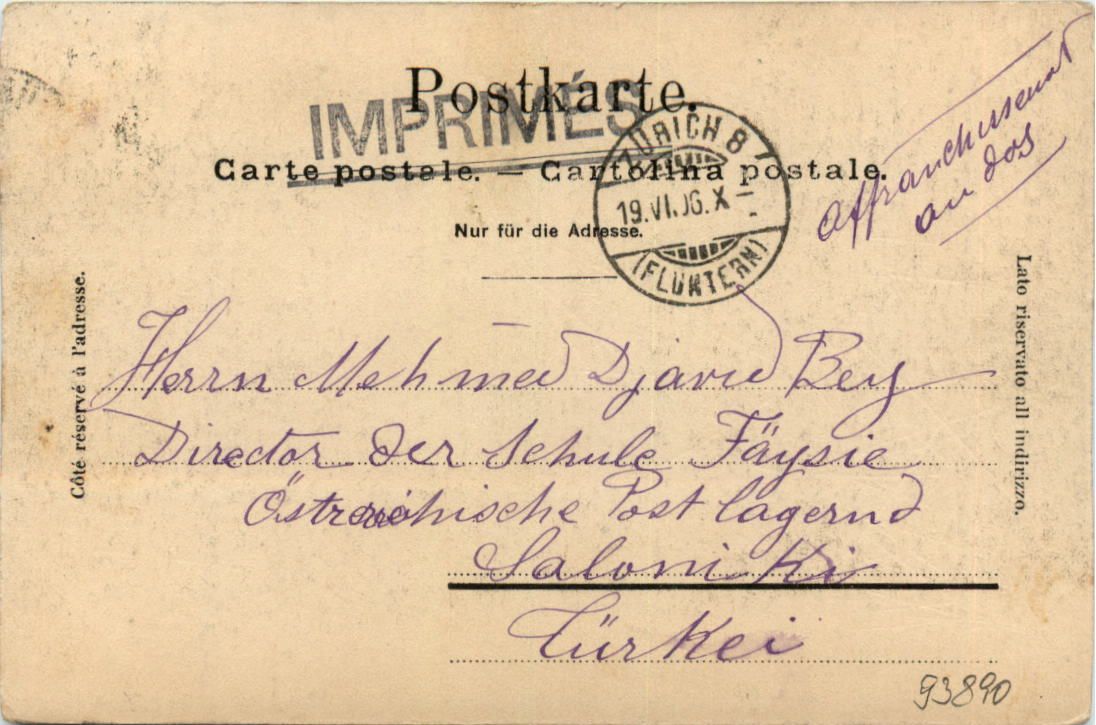 Postkarte.
IMPRIMÉS
Carte postale. — Cartolina postale.
Nur für die Adresse.
ZÜRICH 8
19.VI.06.X-
(FLUNTERN)
Affranchissement
au dos
Côté réservé à l'adresse.
Lato riservato all indirizzo.
Herrn Mehmed Djavid Bey
Director der Schule Fäysie
Östreichische Post lagernd
Saloniki
Türkei
93890